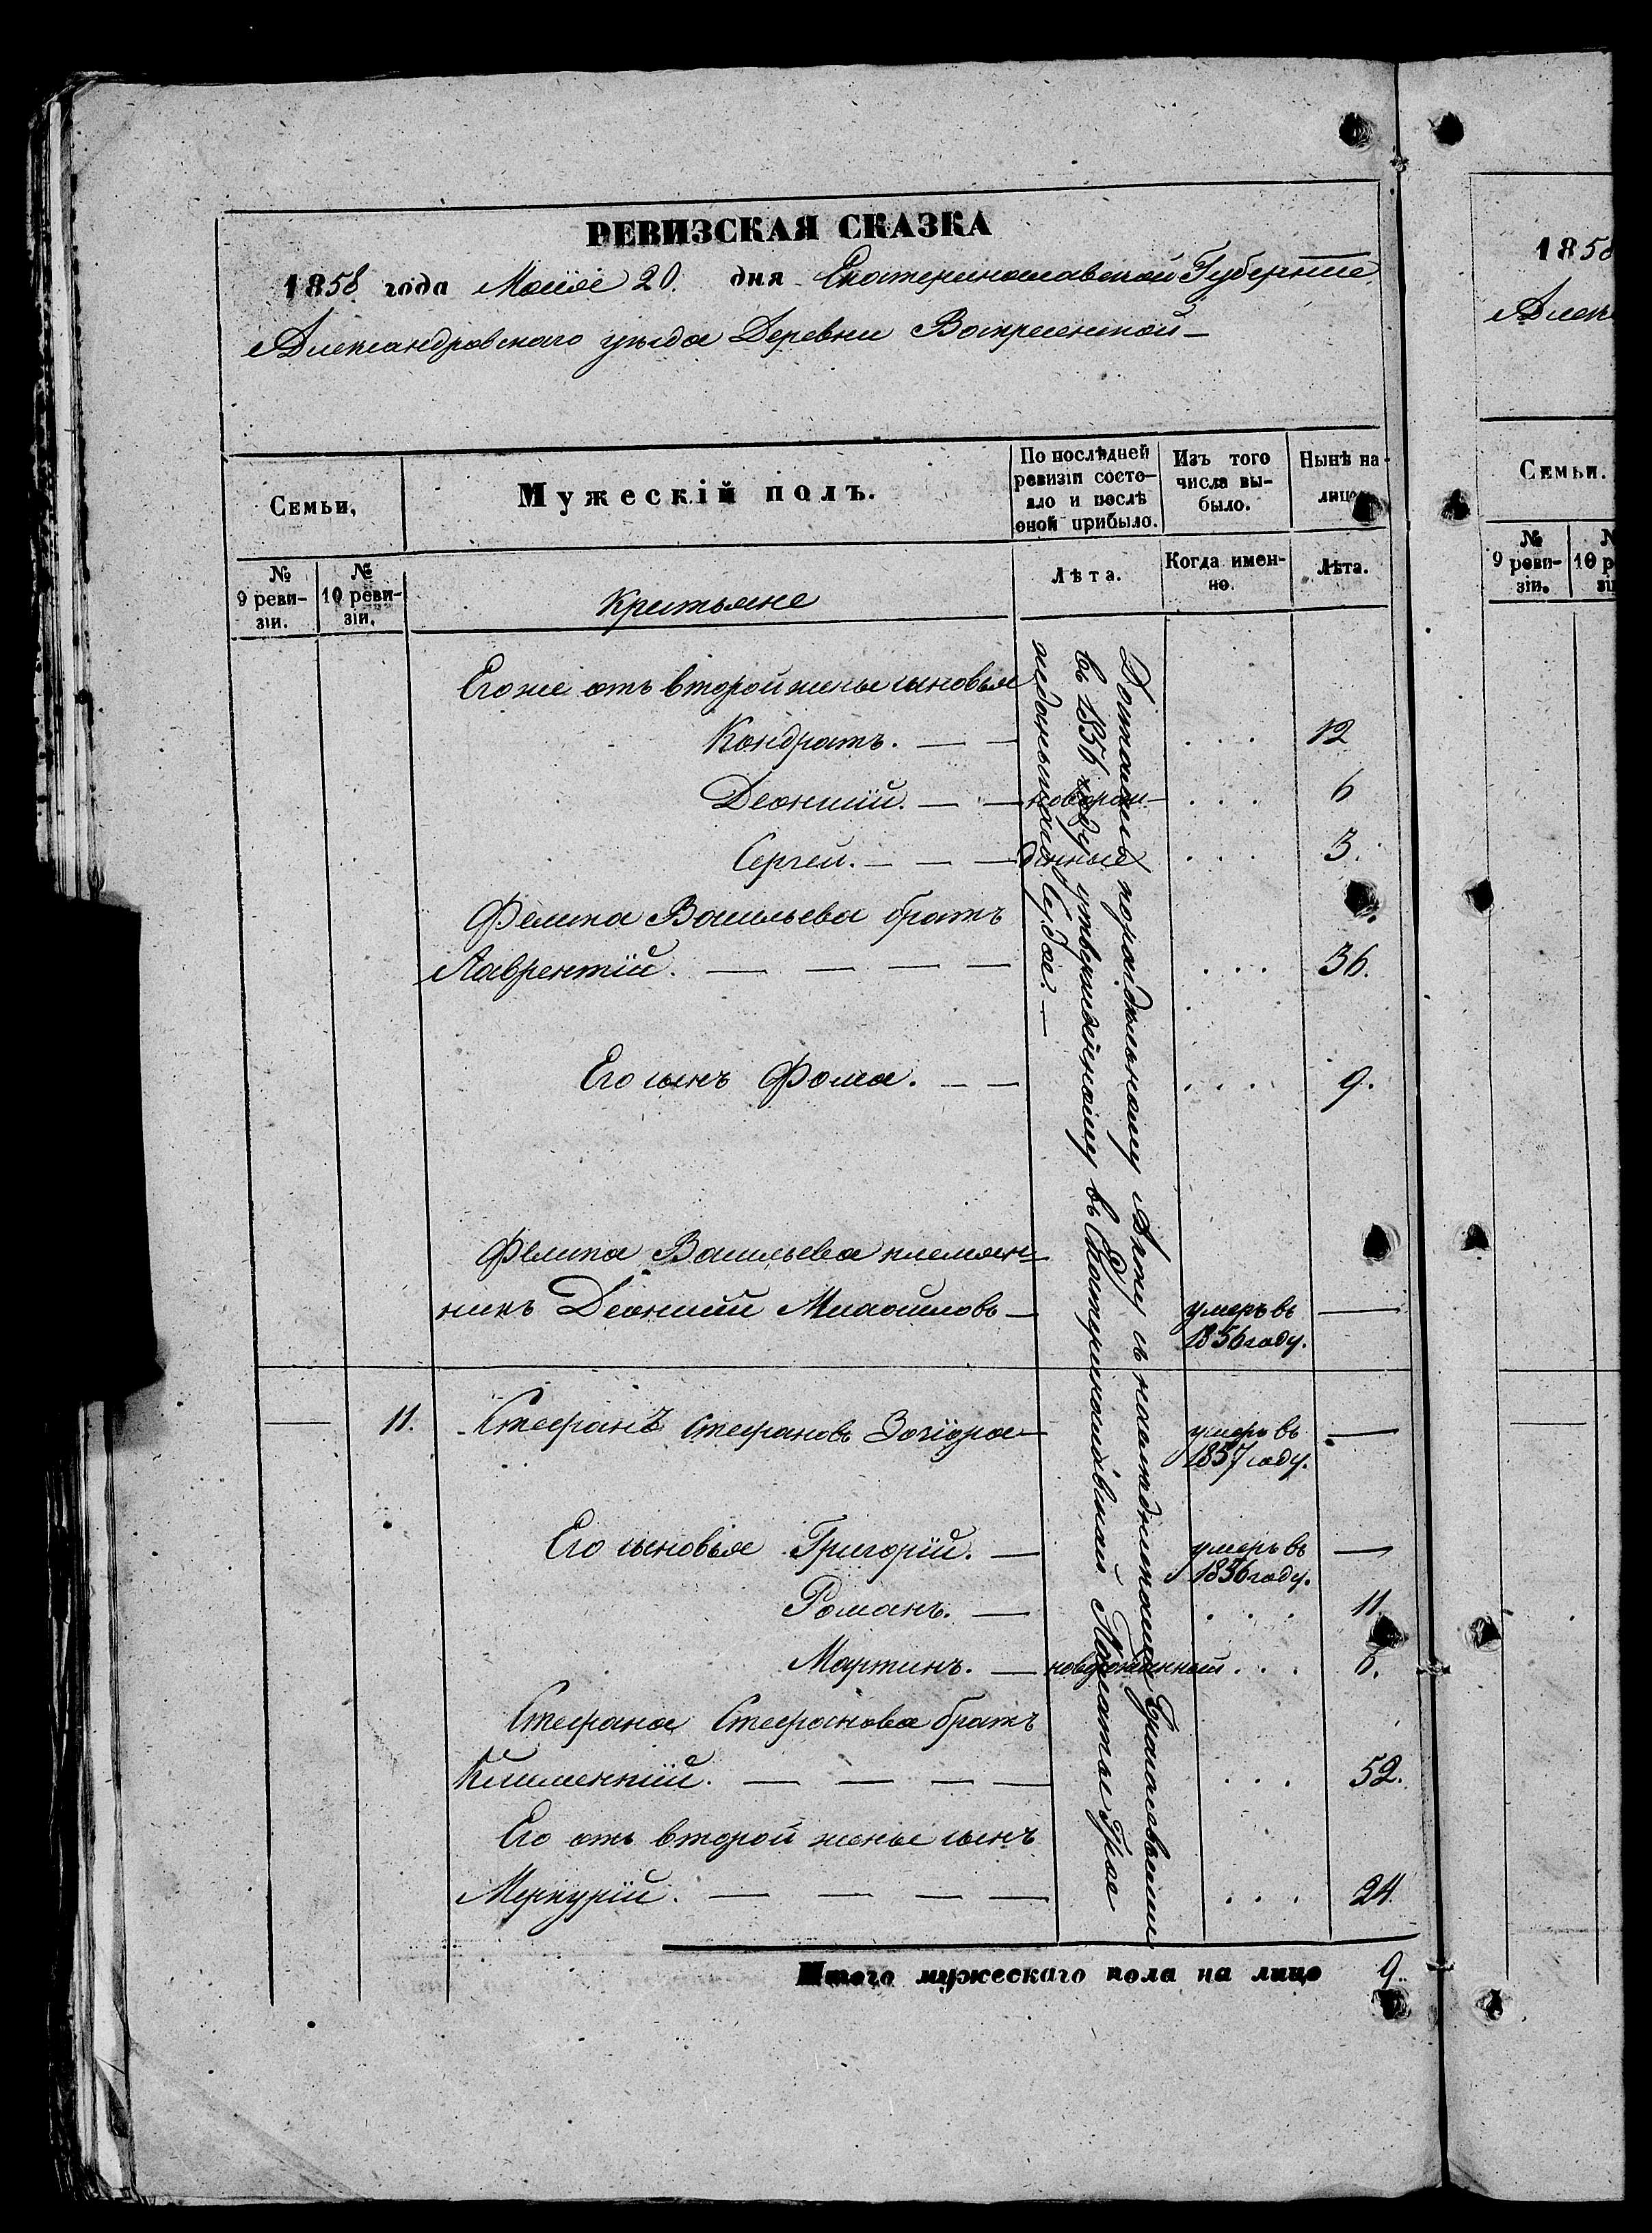 РЕВИЗСКАЯ СКАЗКА
1858 года Маія 20. дня Екатеринославской Губерніи
Александровскаго уѣзда Деревни Воскресенской
Семьи,
Мужескій полъ.
По послѣдней ревизіи состояло и послѣ оной прибыло.
Изъ того числа выбыло.
Нынѣ на лицо
№ 9 ревизіи.
№ 10 ревизіи.
Крестьяне
Лѣта.
Когда именно.
Лѣта.
Достались по раздѣльному Акту съ наслѣдниками
въ 1856 году утвержденному въ Екатеринославской Палатѣ Гра
жданскаго Суда. —
Его же отъ второй жены сыновья
Кондратъ. — — . . . 12
Деонисій. — — новорож- . . . 6
Сергей. — — — денные . . . 3.
Филипа Васильева братъ
Лаврентій. — — — — . . . 36.
Его сынъ Фома. — — . . . 9.
Филипа Васильева племян-
никъ Деонисій Михайловъ — умеръ въ 1856 году. —
— 11. Стефанъ Стефановъ — умеръ въ 1857 году. —
Его сыновья Григорій. — умеръ въ 1856 году. —
Романъ. — . . . 11
Мартинъ. — новорожденный . . . 6.
Стефана Стефанова братъ
Климентій. — — — — . . . 52.
Его отъ второй жены сынъ
Меркурій. — — — — . . . 24.
Итого мужескаго пола на лицо 9.
1858
Алек
Семьи.
№ 9 реви- зіи.
10 р